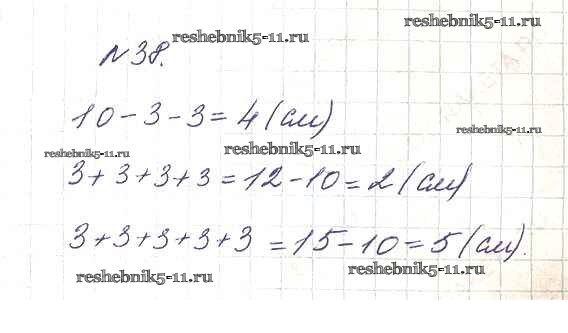 reshebnik5-11.ru
№38. reshebnik5-11.ru
10 - 3 - 3 = 4 (см)
reshebnik5-11.ru
reshebnik5-11.ru reshebnik5-11.ru
3 + 3 + 3 + 3 = 12 - 10 = 2 (см)
3 + 3 + 3 + 3 + 3 = 15 - 10 = 5 (см).
reshebnik5-11.ru reshebnik5-11.ru